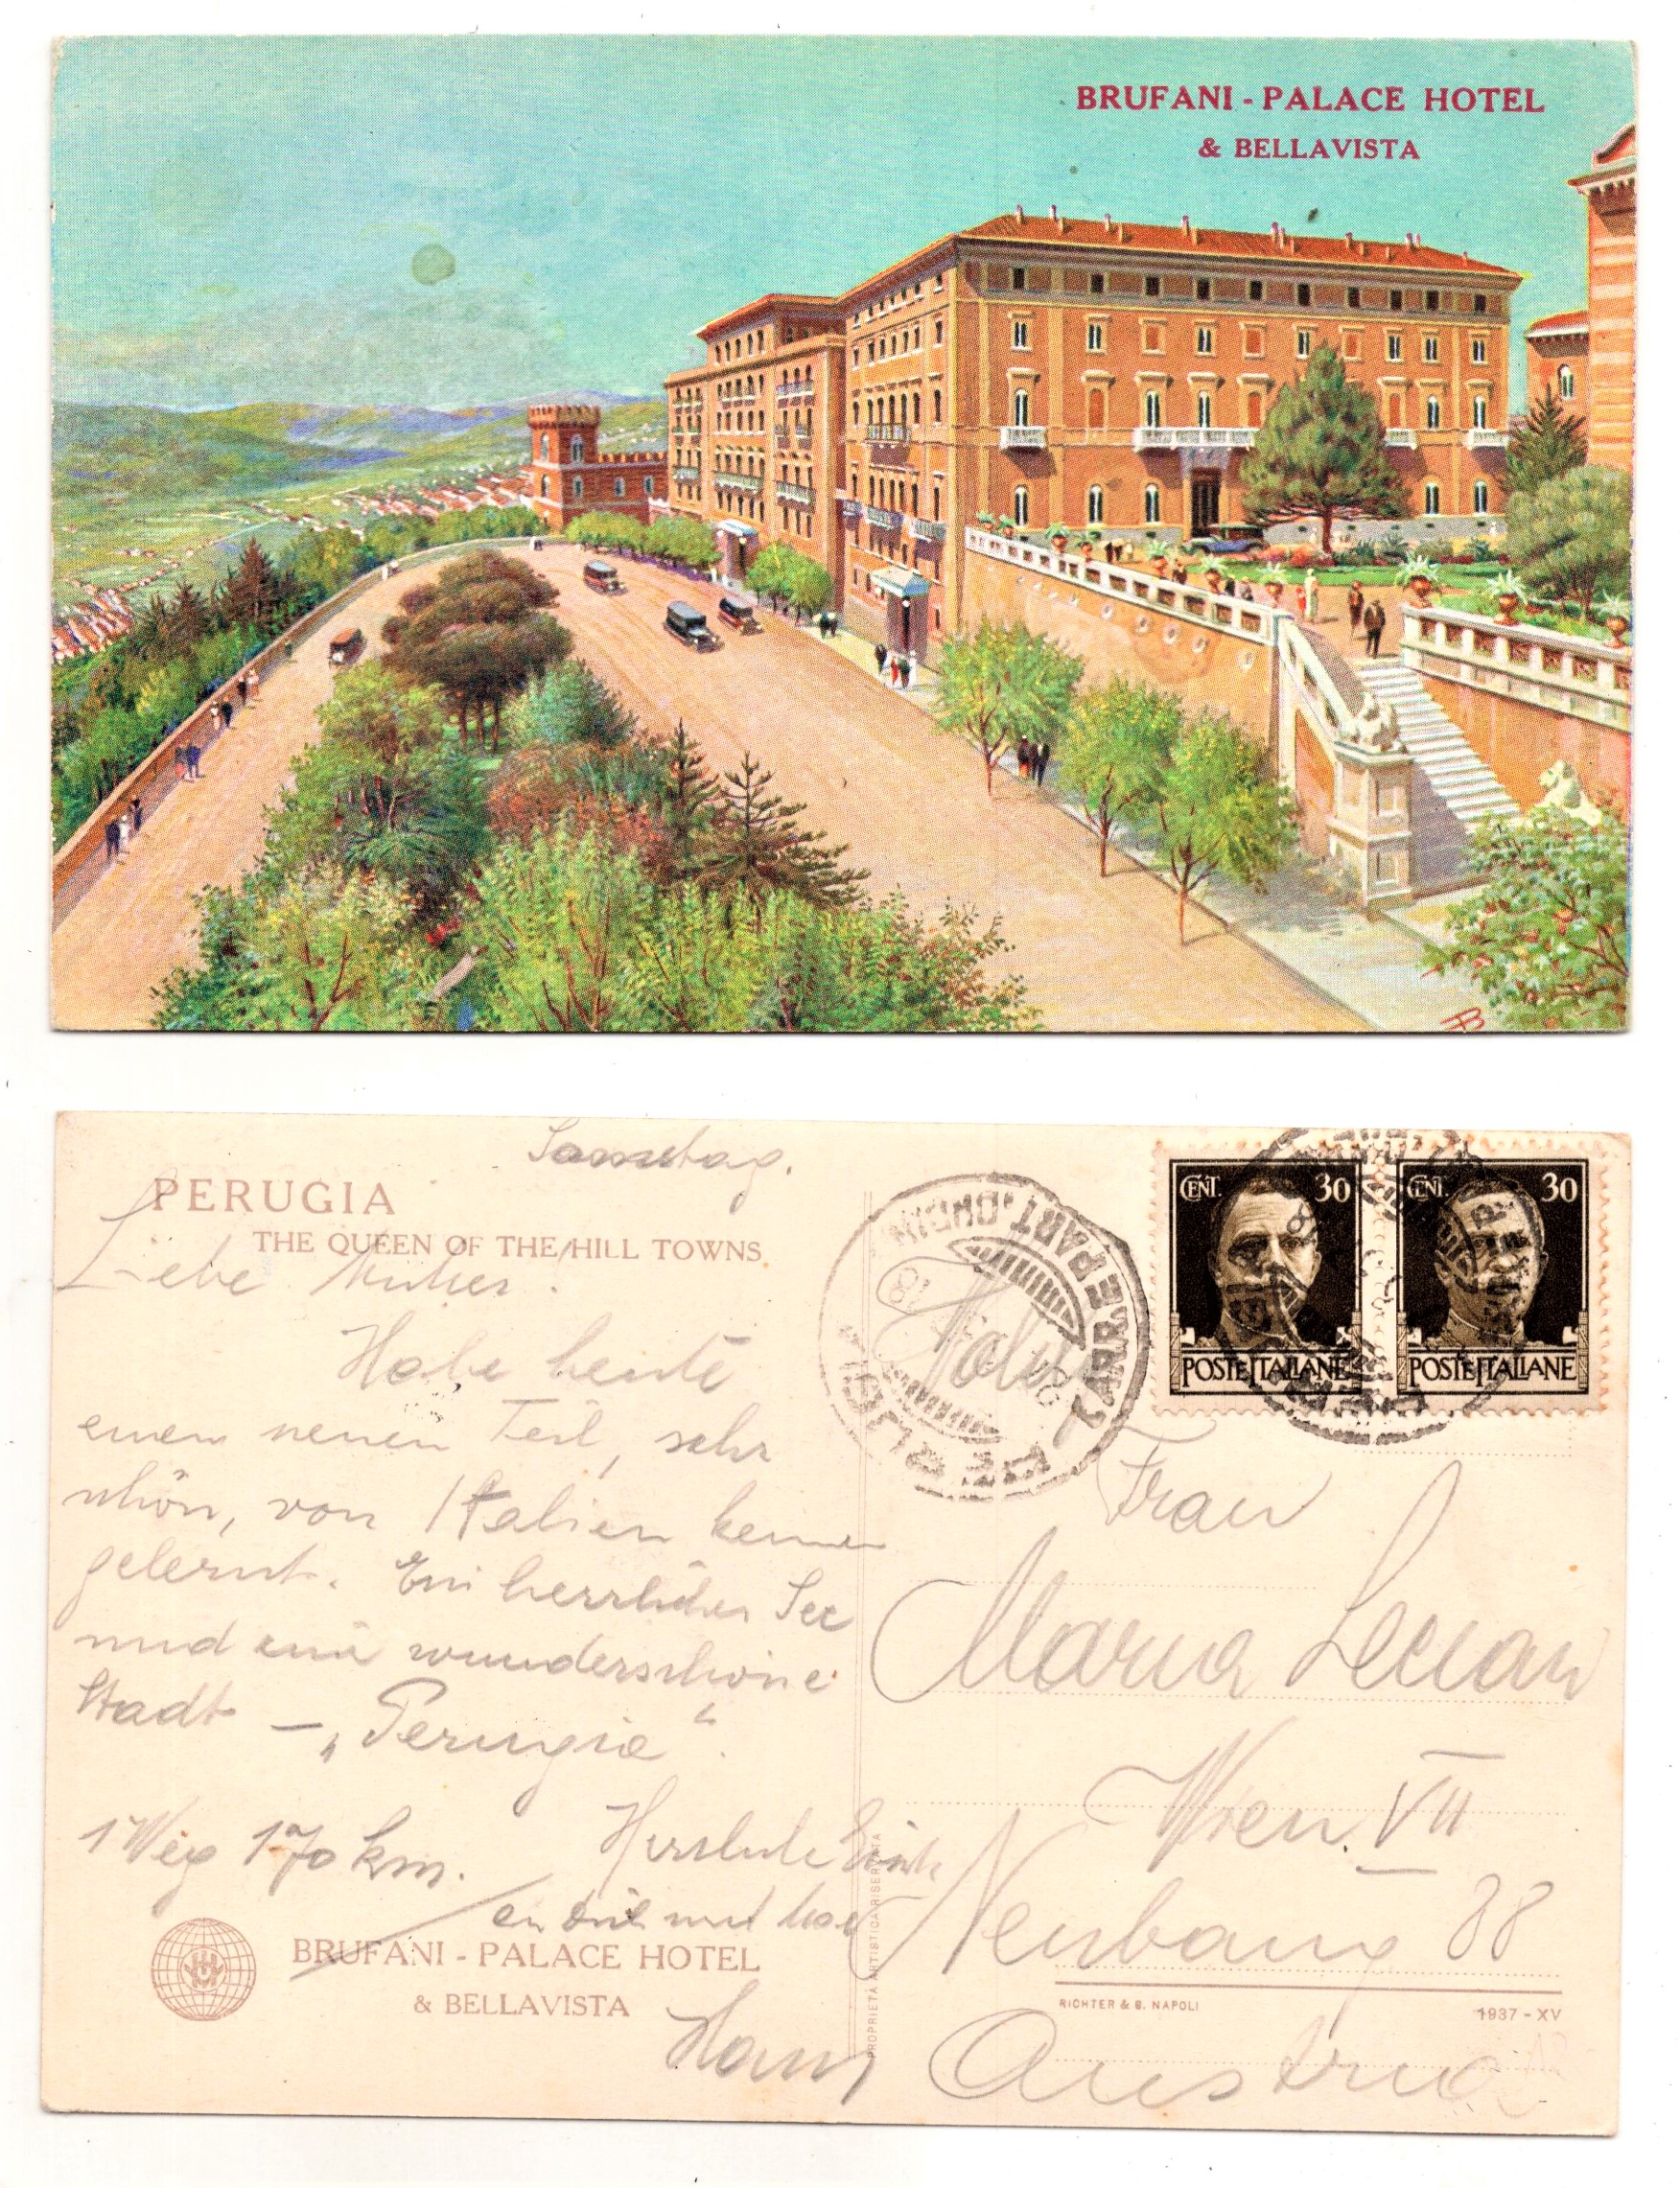 BRUFANI - PALACE HOTEL
& BELLAVISTA
Samstag.
PERUGIA
THE QUEEN OF THE HILL TOWNS
Liebe Mutter!
Habe heute
einen neuen Teil, sehr
schön, von Italien kennen
gelernt. Ein herrlicher See
und eine wunderschöne
Stadt – „Perugia“.
1 Weg 170 km. Herzliche
BRUFANI - PALACE HOTEL
& BELLAVISTA
Hans
PROPRIETÀ ARTISTICA RISERVATA
CENT. 30
POSTE ITALIANE
CENT. 30
POSTE ITALIANE
Frau
Maria
Wien. VII
Neubaug 88
RICHTER & C. NAPOLI
1937 - XV
Austria